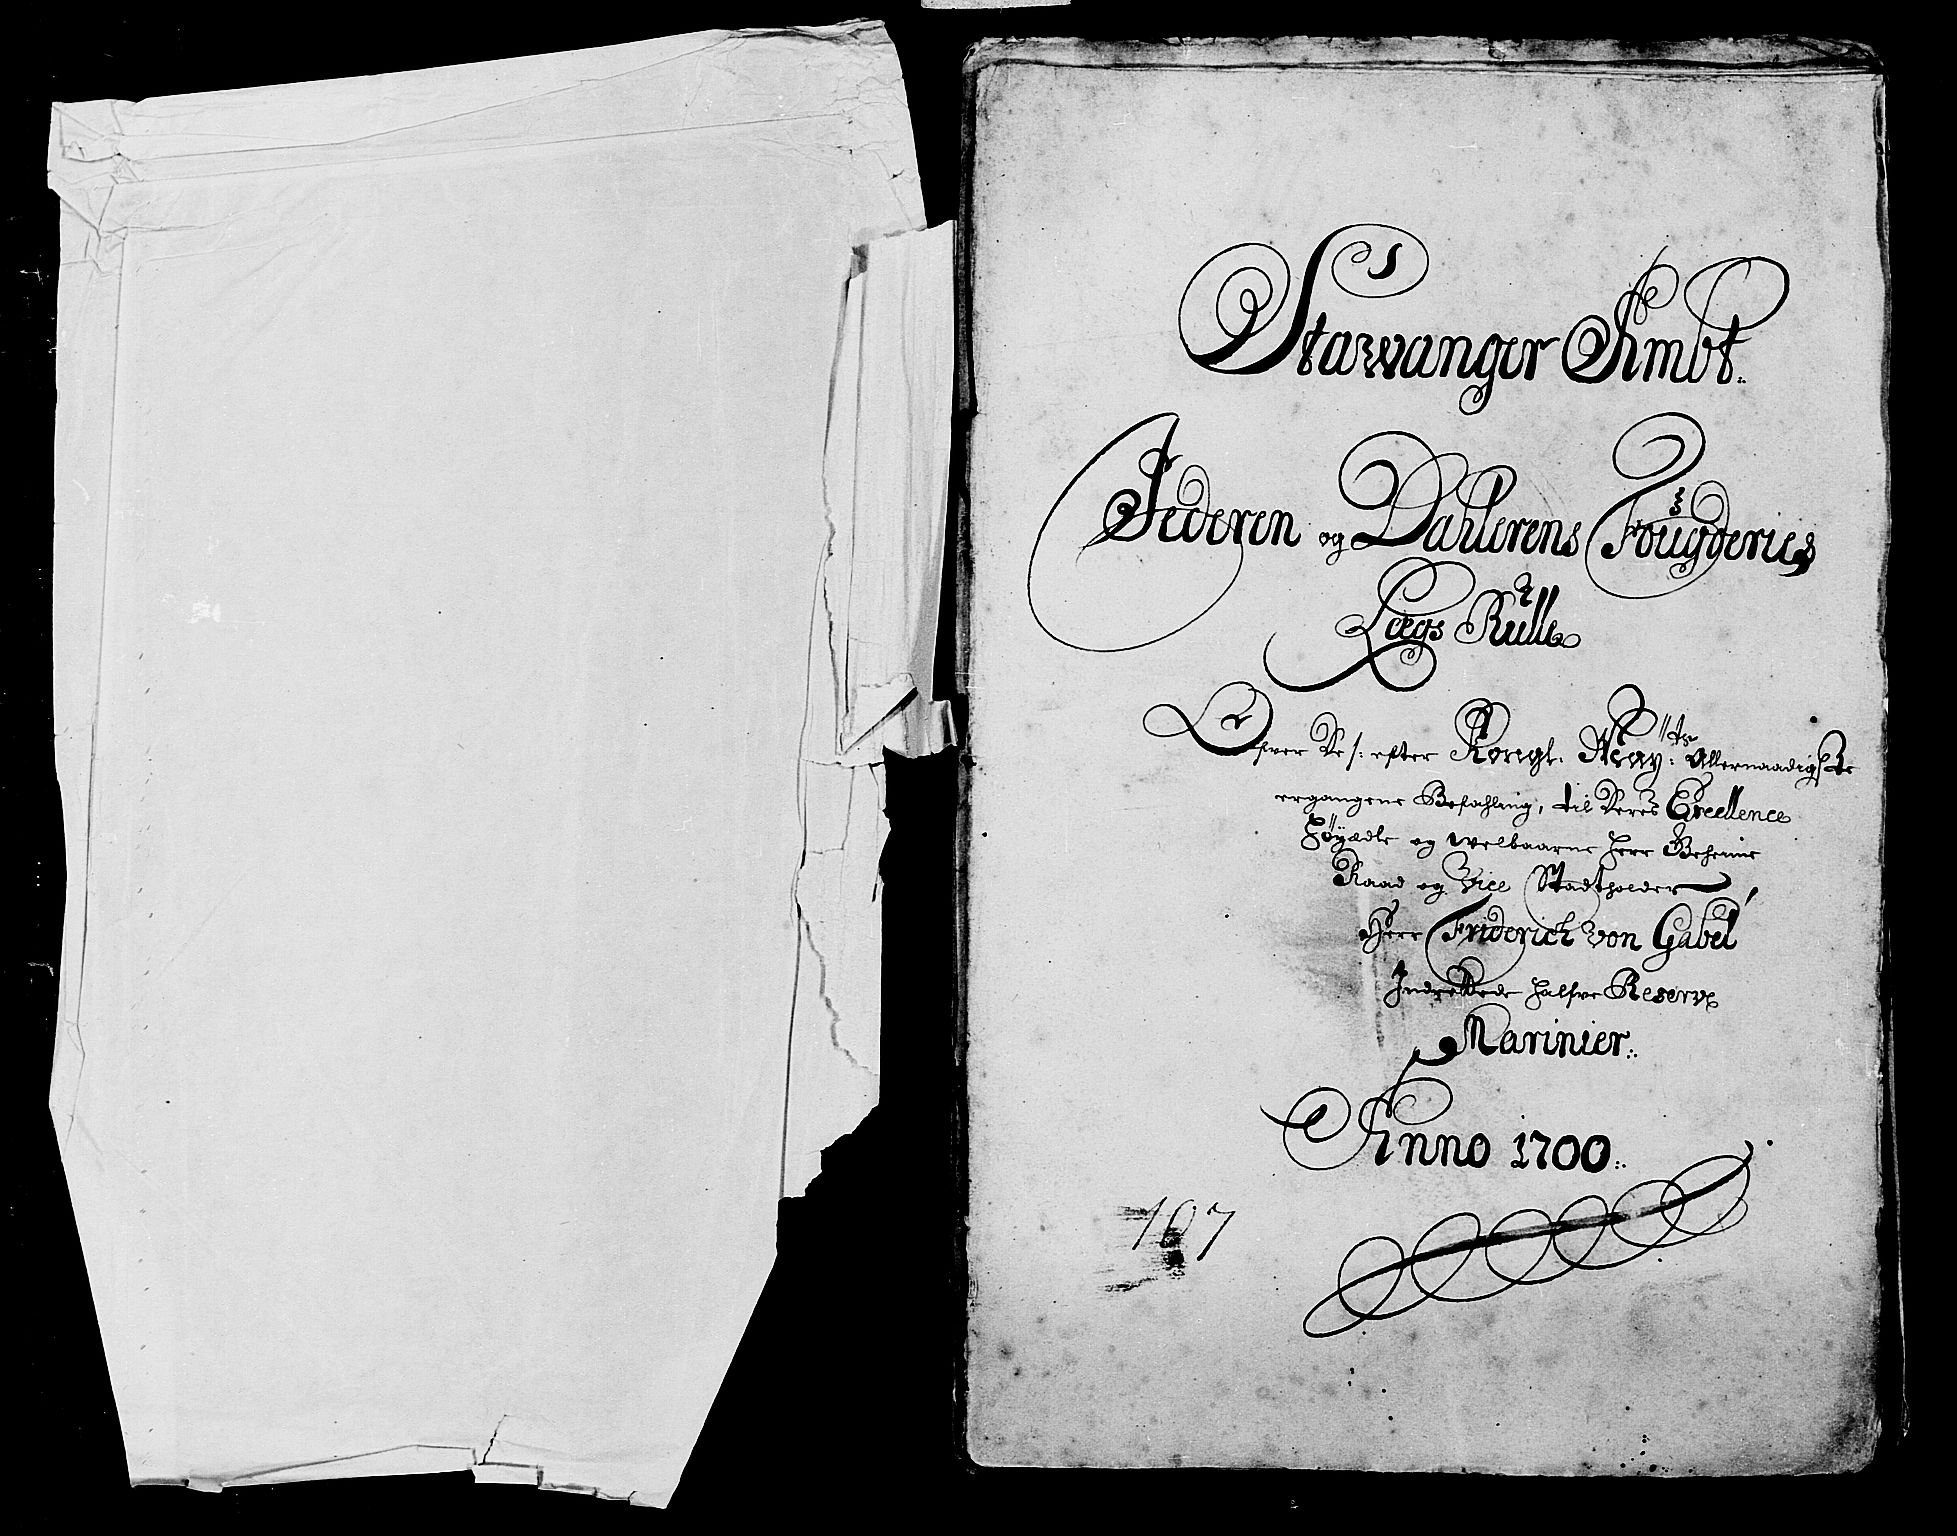 Stawanger Ambt.
Jederen og Dahlerens Fougderies
Lægs Rulle
Ofver De /: efter Kongl. May:ts Allernaadigste
ergangene Befahling, til Deres Excellence
Höyædle og Welbaarne Herr Geheime
Raad og Vice Stadtholder
Herr Friderich von Gabel
Indrettede halfve Reserve
Marinier.
Anno 1700.
107